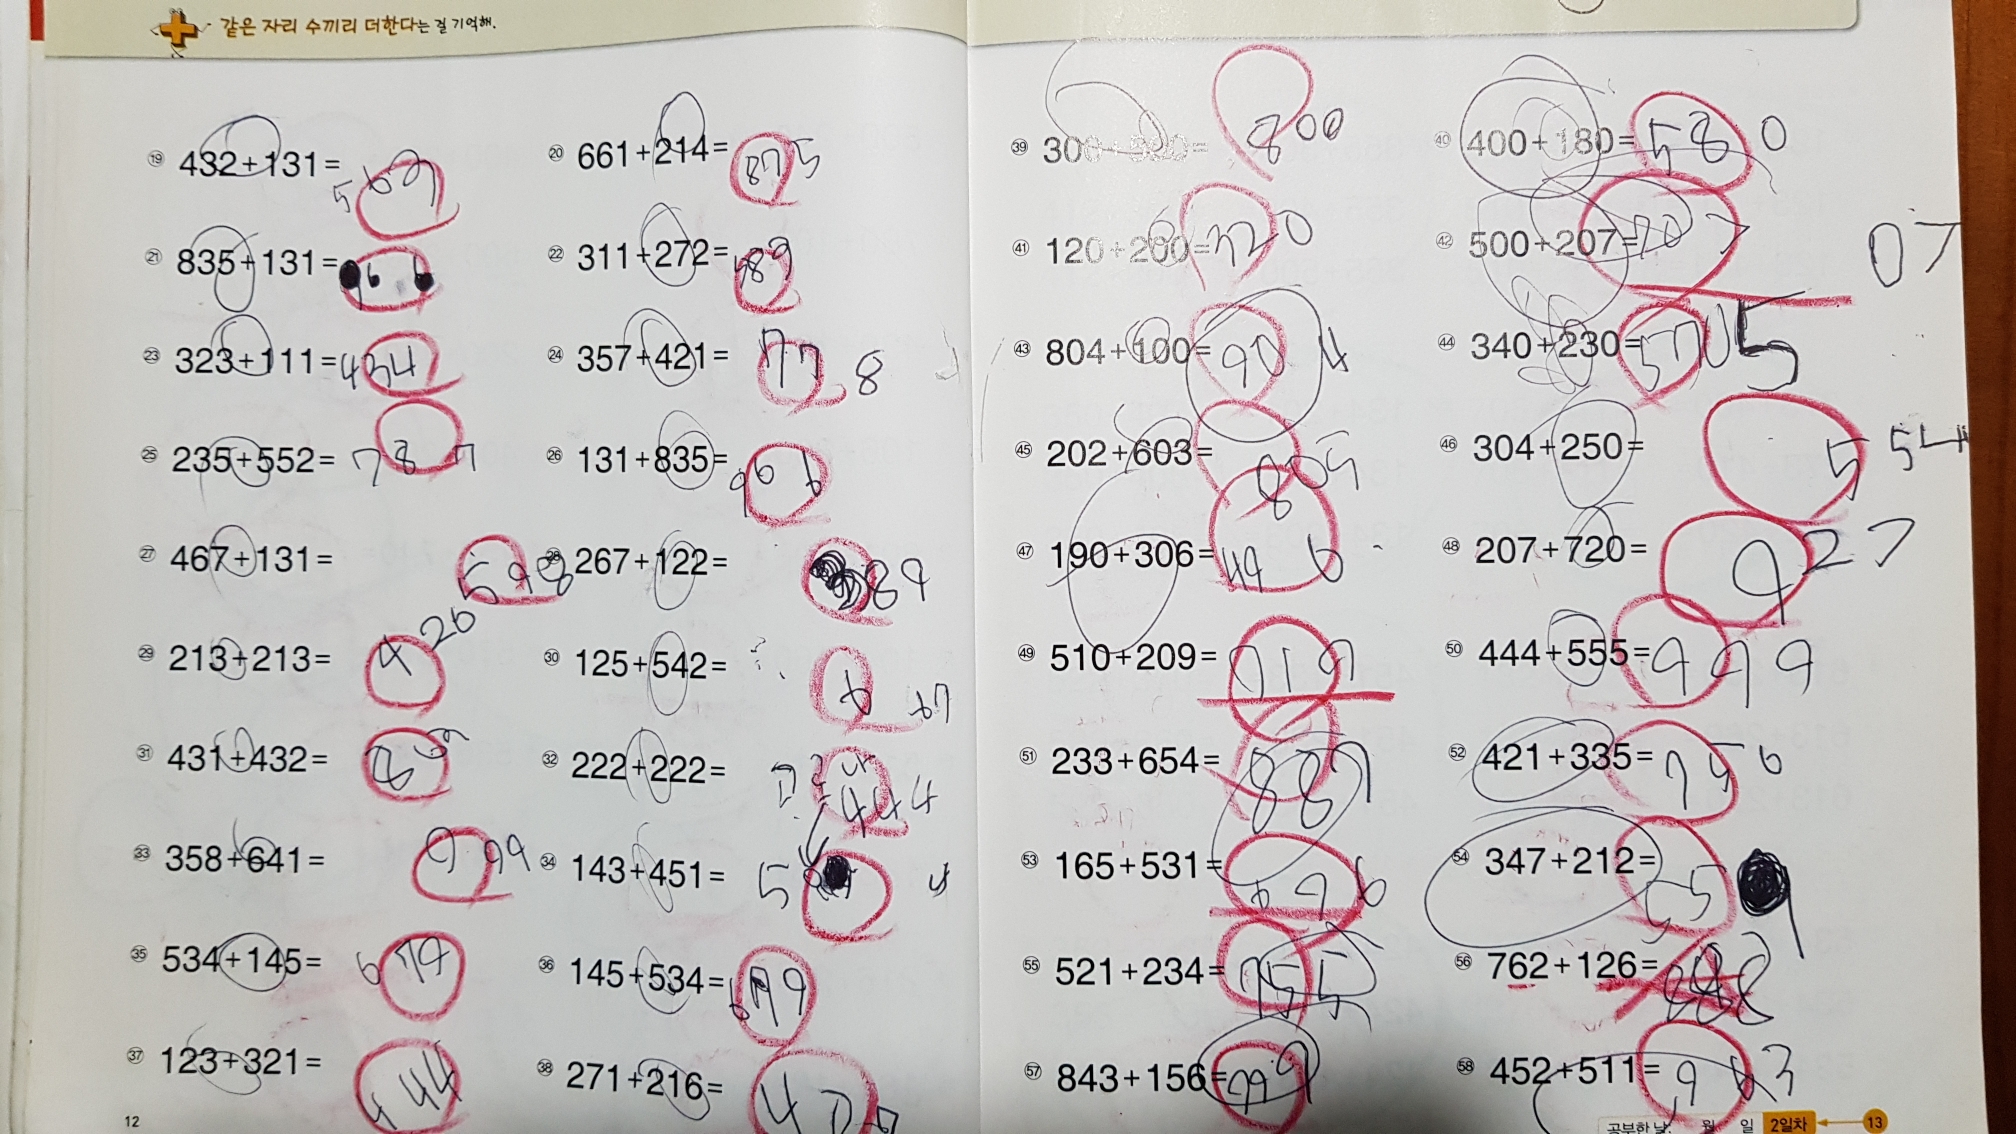 같은 자리 수끼리 더한다는 걸 기억해.
⑲ 432+131= 563
⑳ 661+214= 875
㉑ 835+131= 966
㉒ 311+272= 583
㉓ 323+111= 434
㉔ 357+421= 778
㉕ 235+552= 787
㉖ 131+835= 966
㉗ 467+131= 598
㉘ 267+122= 389
㉙ 213+213= 426
㉚ 125+542= 667
㉛ 431+432= 863
㉜ 222+222= 444
㉝ 358+641= 999
㉞ 143+451= 5
㉟ 534+145= 679
㊱ 145+534= 679
㊲ 123+321= 444
㊳ 271+216= 4
12
㊴ 300+500= 800
㊵ 400+180= 580
㊶ 120+200= 320
㊷ 500+207= 707
07
㊸ 804+100= 904
㊹ 340+230= 570
5
㊺ 202+603= 805
㊻ 304+250= 554
㊼ 190+306= 496
㊽ 207+720= 927
㊾ 510+209= 719
㊿ 444+555= 999
51 233+654= 887
52 421+335= 756
53 165+531= 696
54 347+212= 559
55 521+234= 755
56 762+126=
57 843+156= 999
58 452+511= 963
공부한 날 월 일 2일차 13